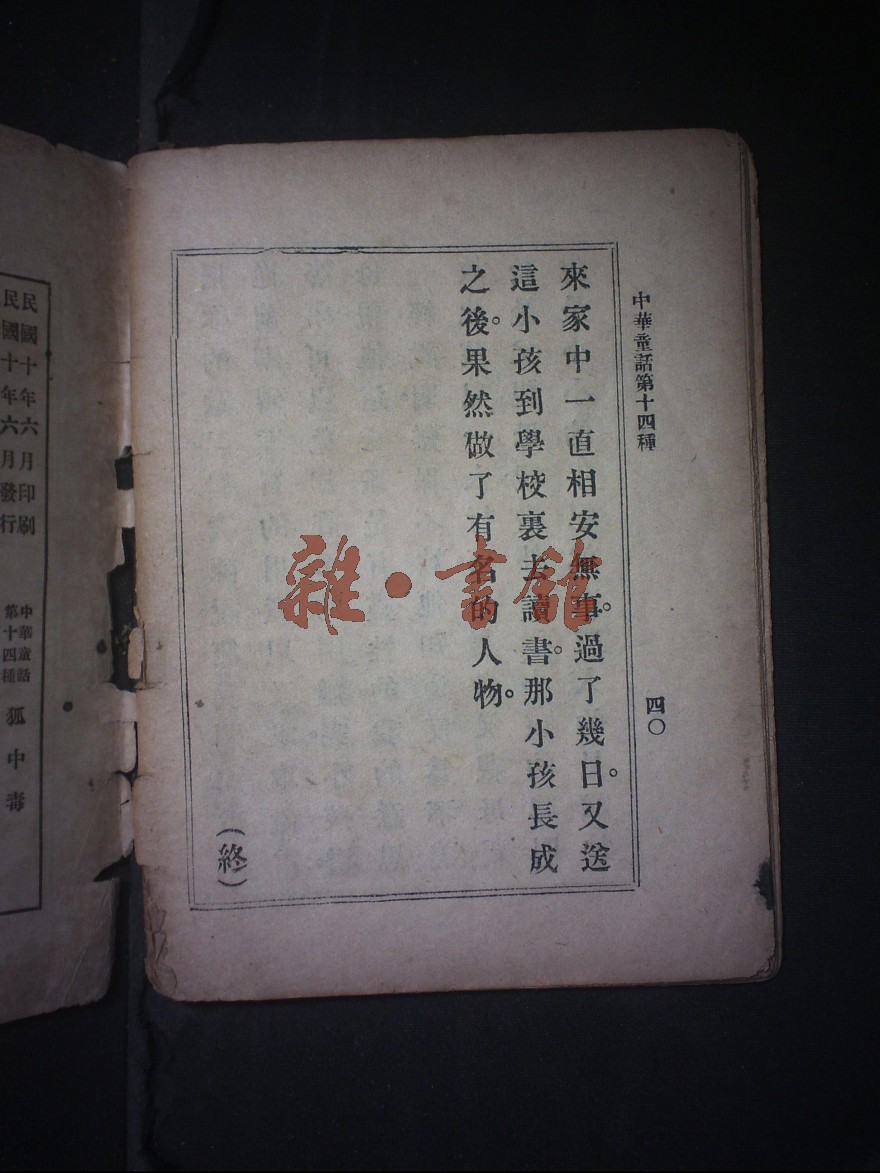 中華童話第十四種
四〇
來家中一直相安無事。過了幾日。又送
這小孩到學校裏去讀書。那小孩長成
之後。果然做了有名的人物。
(終)
雜·書館
民國十年六月印刷
民國十年六月發行
中華童話
第十四種
狐中毒